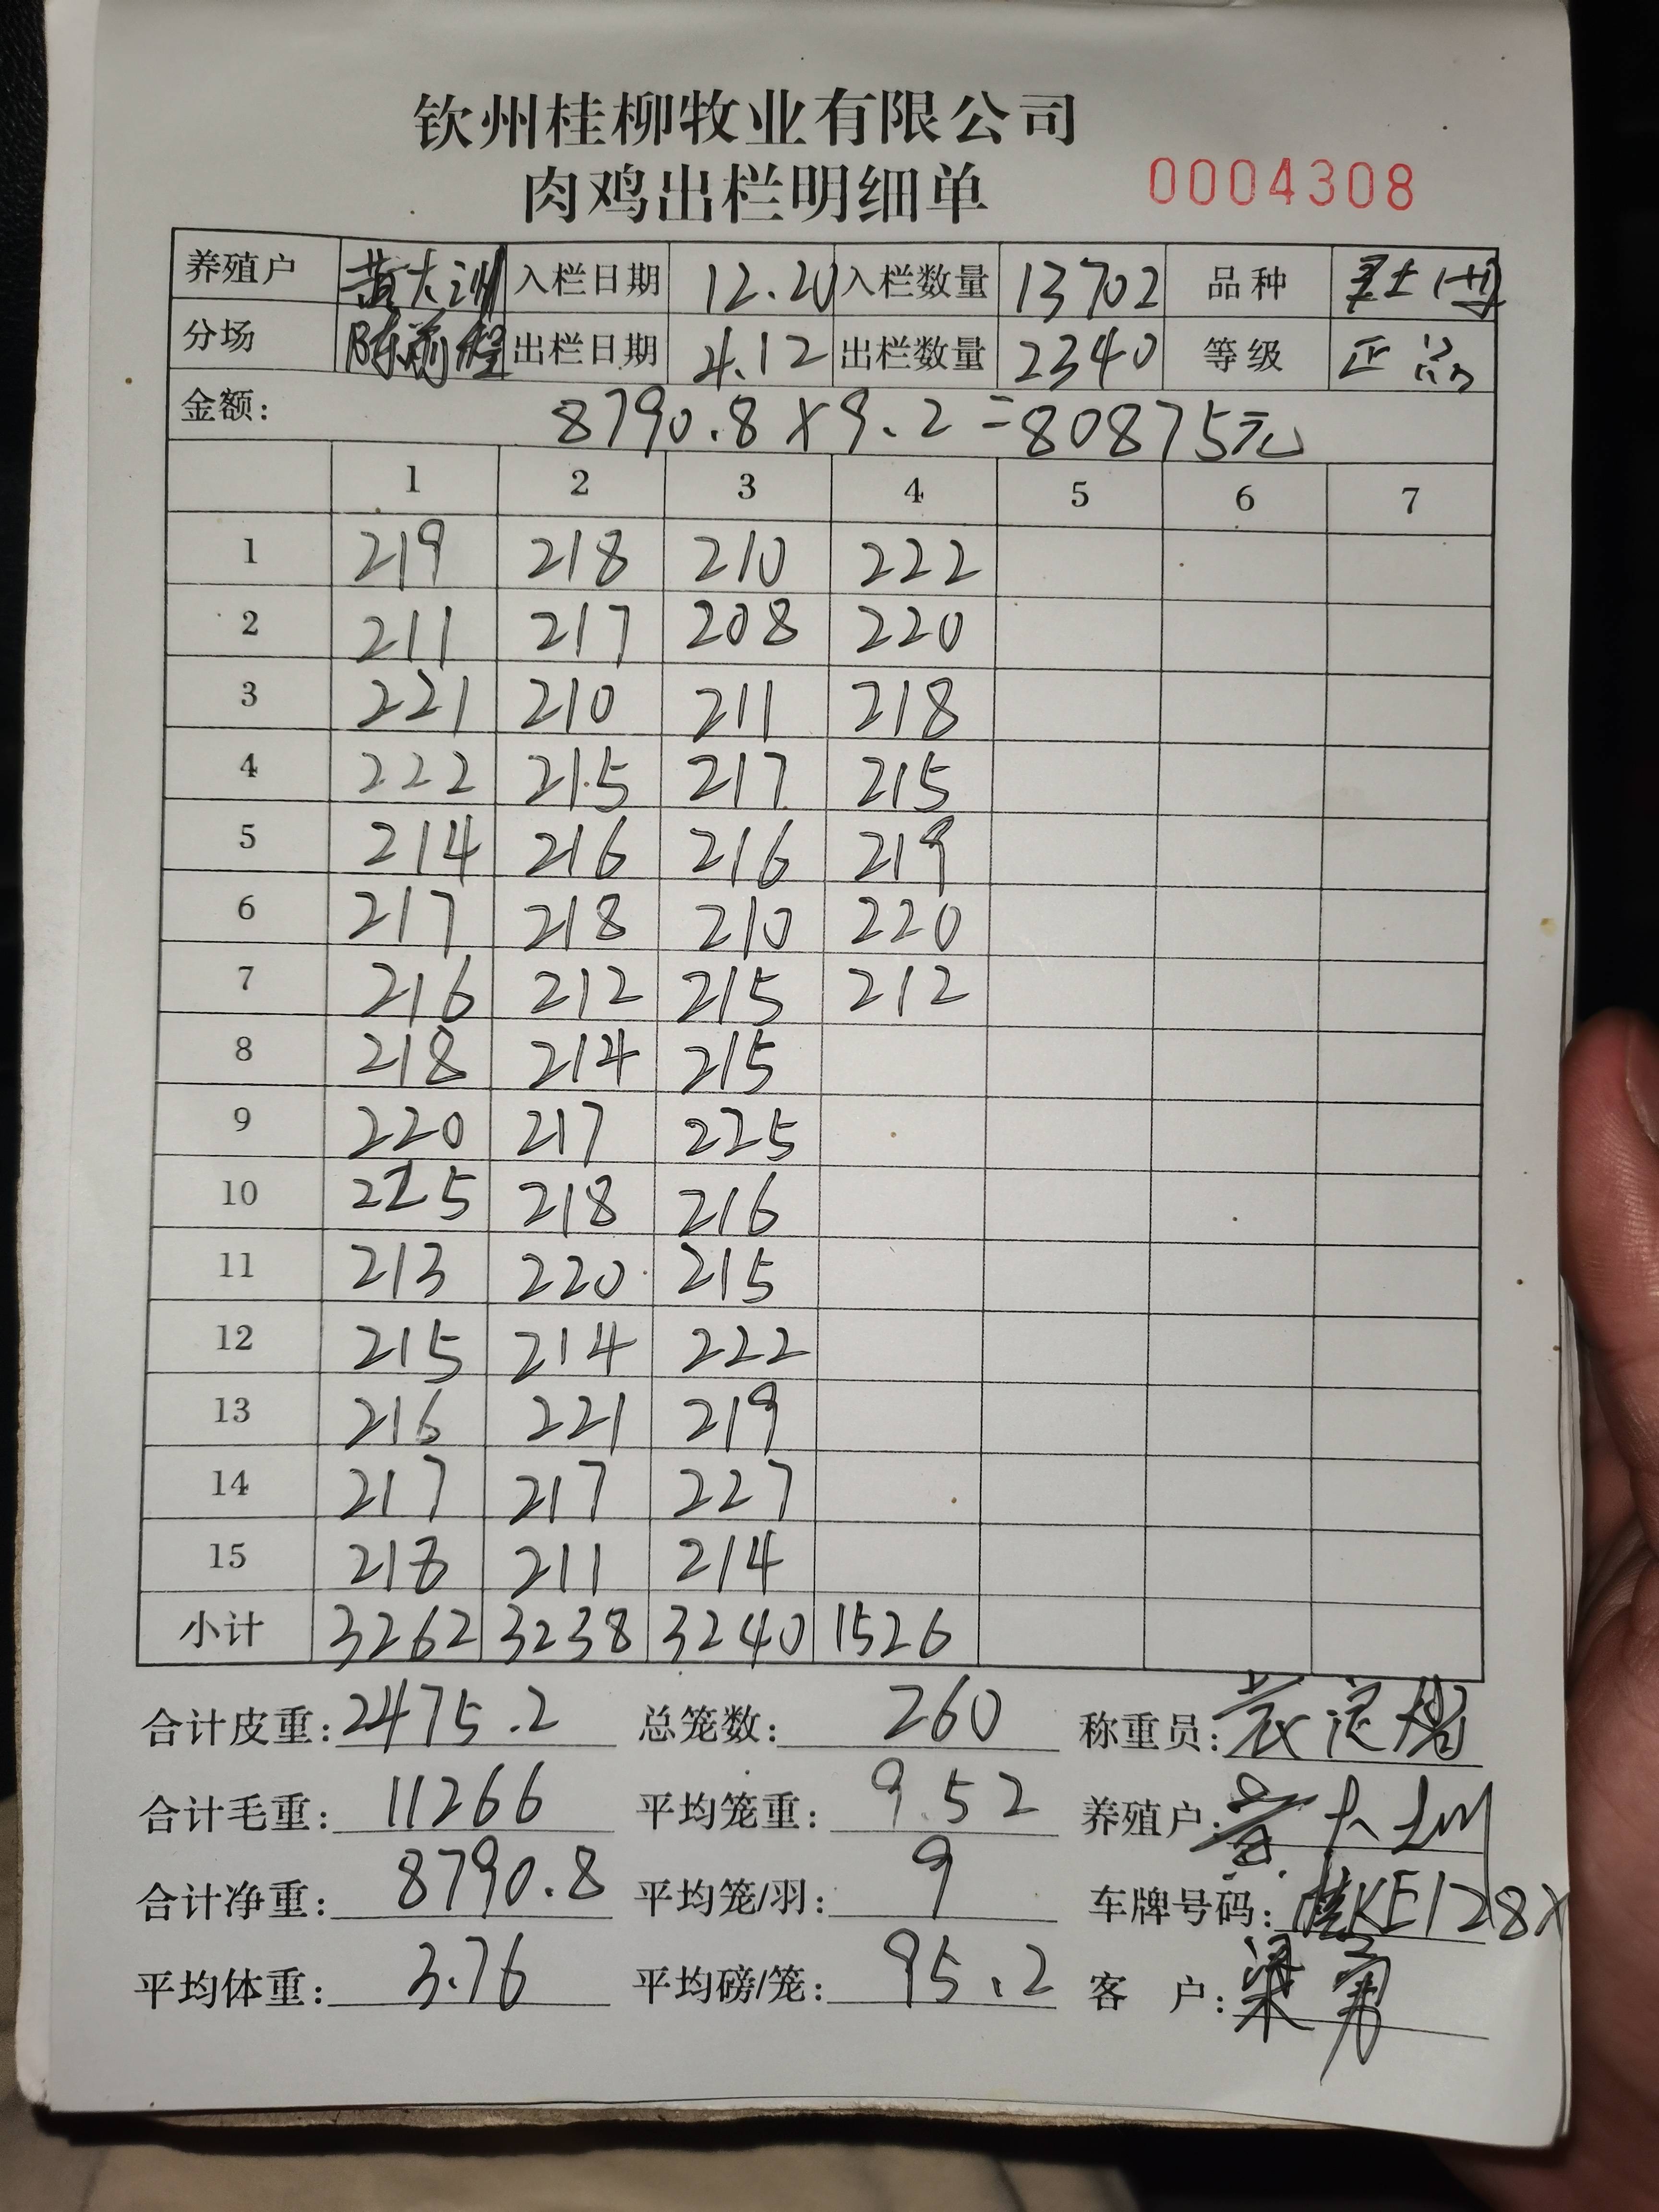 钦州桂柳牧业有限公司
肉鸡出栏明细单 0004308
养殖户 黄大洲 入栏日期 12.20 入栏数量 13702 品种
分场 陈前程 出栏日期 4.12 出栏数量 2340 等级 正品
金额: 8790.8×9.2=80875元
1 2 3 4 5 6 7
1 219 218 210 222
2 211 217 208 220
3 221 210 211 218
4 222 215 217 215
5 214 216 216 219
6 217 218 210 220
7 216 212 215 212
8 218 214 215
9 220 217 225
10 225 218 216
11 213 220 215
12 215 214 222
13 216 221 219
14 217 217 227
15 218 211 214
小计 3262 3238 3240 1526
合计皮重: 2475.2 总笼数: 260 称重员:
合计毛重: 11266 平均笼重: 9.52 养殖户: 黄大洲
合计净重: 8790.8 平均笼/羽: 9 车牌号码: 桂KE128X
平均体重: 3.76 平均磅/笼: 95.2 客 户: 梁勇